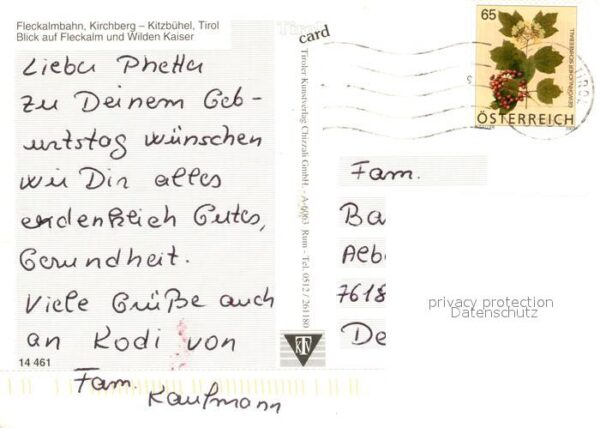 Fleckalmbahn, Kirchberg – Kitzbühel, Tirol
Blick auf Fleckalm und Wilden Kaiser
Lieber Phetta
zu Deinem Geb-
urtstag wünschen
wir Dir alles
erdenklich Gutes,
Gesundheit.
Viele Grüße auch
an Kodi von
Fam.
Kaufmann
14 461
Tirol
card
Tiroler Kunstverlag Chizzali GmbH. - A-6063 Rum - Tel. 0512 / 261180
KTV
65
GEWÖHNLICHER SCHNEEBALL
ÖSTERREICH
TIROL
Fam.
Ba
Albe
7618
De
privacy protection
Datenschutz